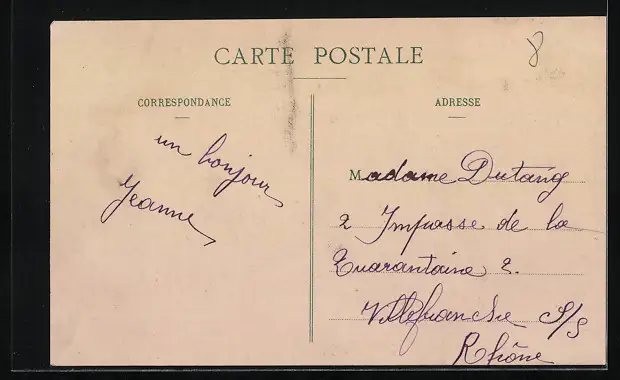 8
CARTE POSTALE
CORRESPONDANCE
un bonjour
Jeanne
ADRESSE
Madame Dutang
2 Impasse de la
Quarantaine 2.
Villefranche S/S
Rhône